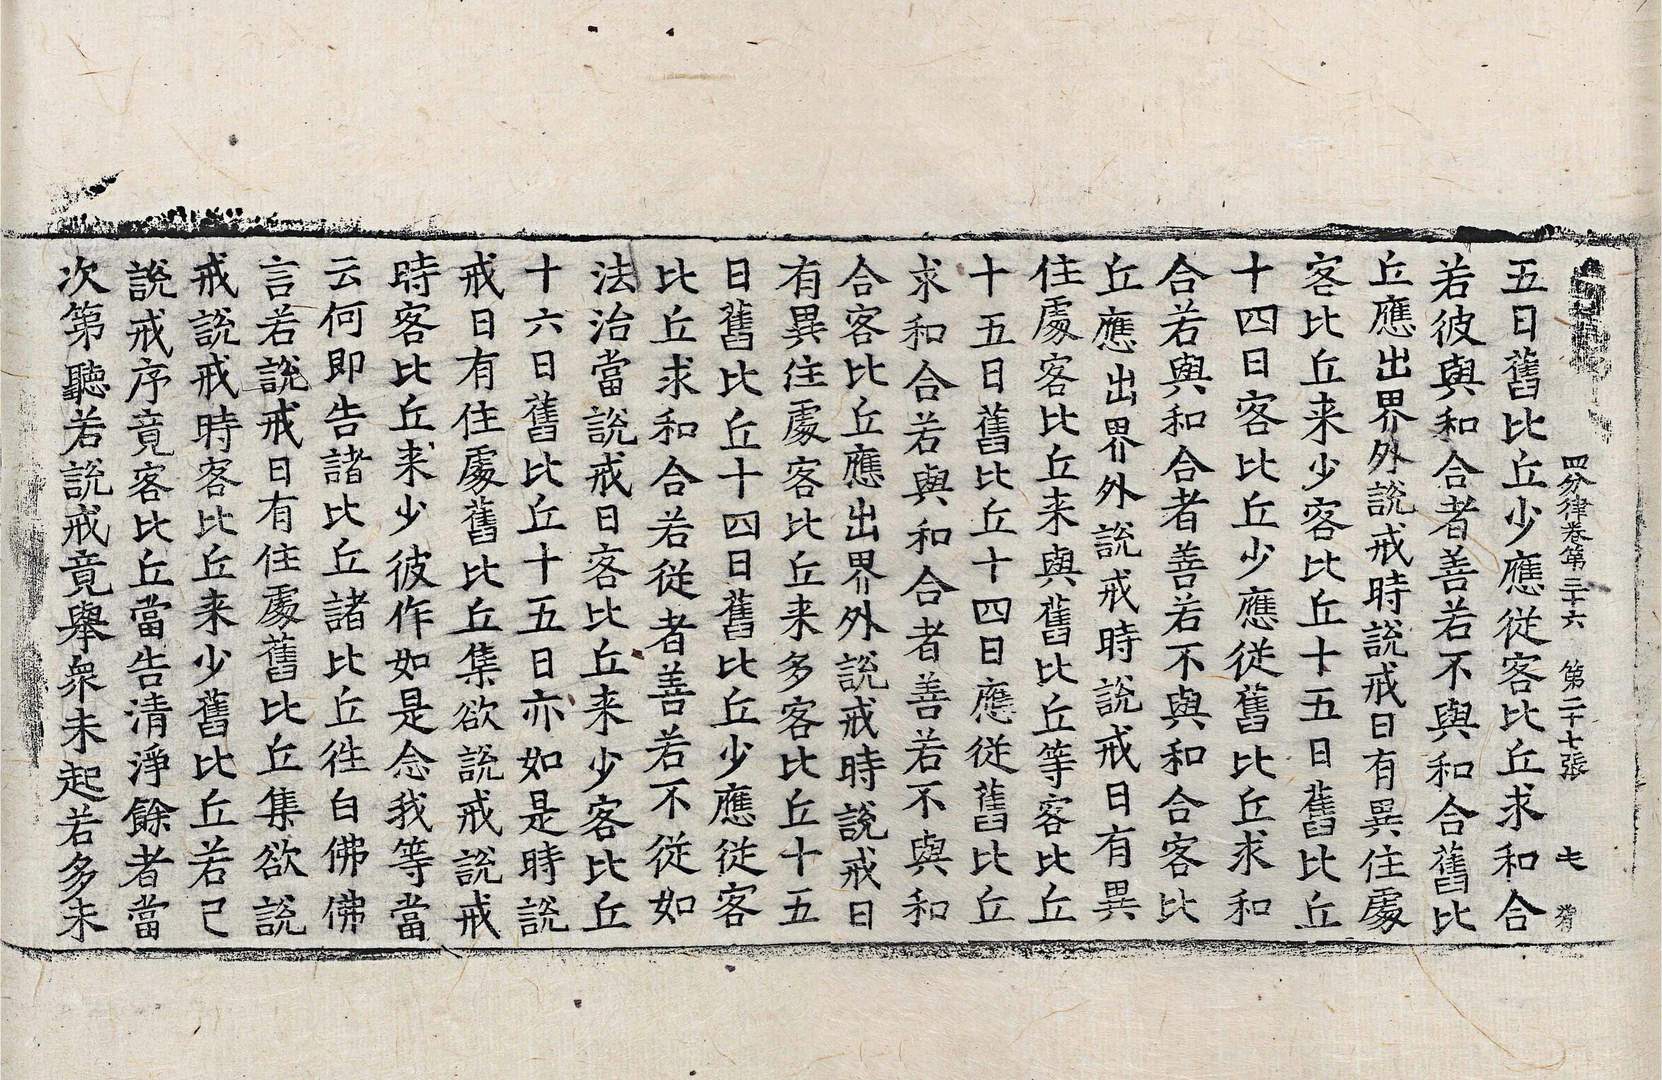 四分律卷第三十六　第二十七張
五日舊比丘少應從客比丘求和合
若彼與和合者善若不與和合舊比
丘應出界外說戒時說戒日有異住處
客比丘来少客比丘十五日舊比丘
十四日客比丘少應從舊比丘求和
合若與和合者善若不與和合客比
丘應出界外說戒時說戒日有異
住處客比丘来與舊比丘等客比丘
十五日舊比丘十四日應從舊比丘
求和合若與和合者善若不與和
合客比丘應出界外說戒時說戒日
有異住處客比丘来多客比丘十五
日舊比丘十四日舊比丘少應從客
比丘求和合若從者善若不從如
法治當說戒日客比丘来少客比丘
十六日舊比丘十五日亦如是時說
戒日有住處舊比丘集欲說戒說戒
時客比丘来少彼作如是念我等當
云何即告諸比丘諸比丘往白佛佛
言若說戒日有住處舊比丘集欲說
戒說戒時客比丘来少舊比丘若已
說戒序竟客比丘當告清淨餘者當
次第聽若說戒竟舉衆未起若多未